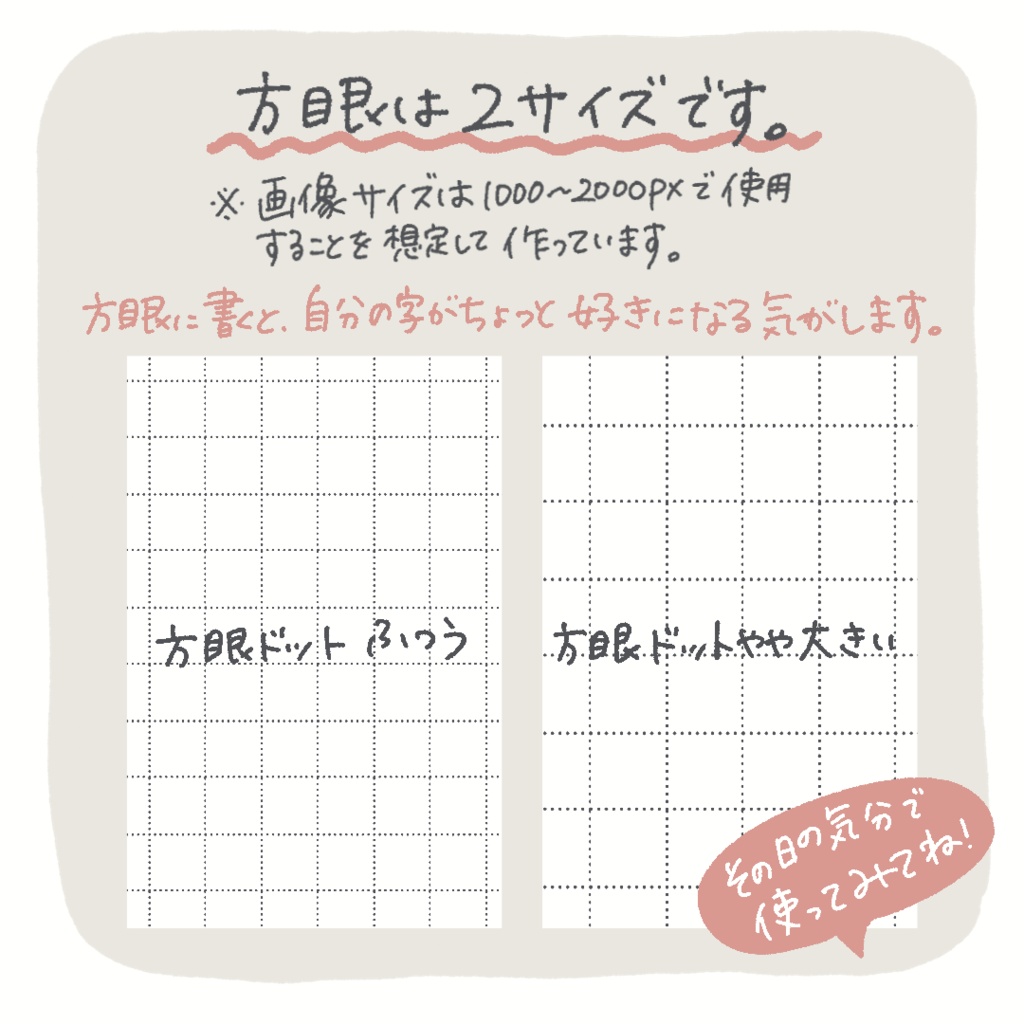 方眼は2サイズです。
※画像サイズは1000~2000pxで使用
することを想定して作っています。
方眼に書くと、自分の字がちょっと好きになる気がします。
方眼ドット ふつう
方眼ドットやや大きい
その日の気分で
使ってみてね!